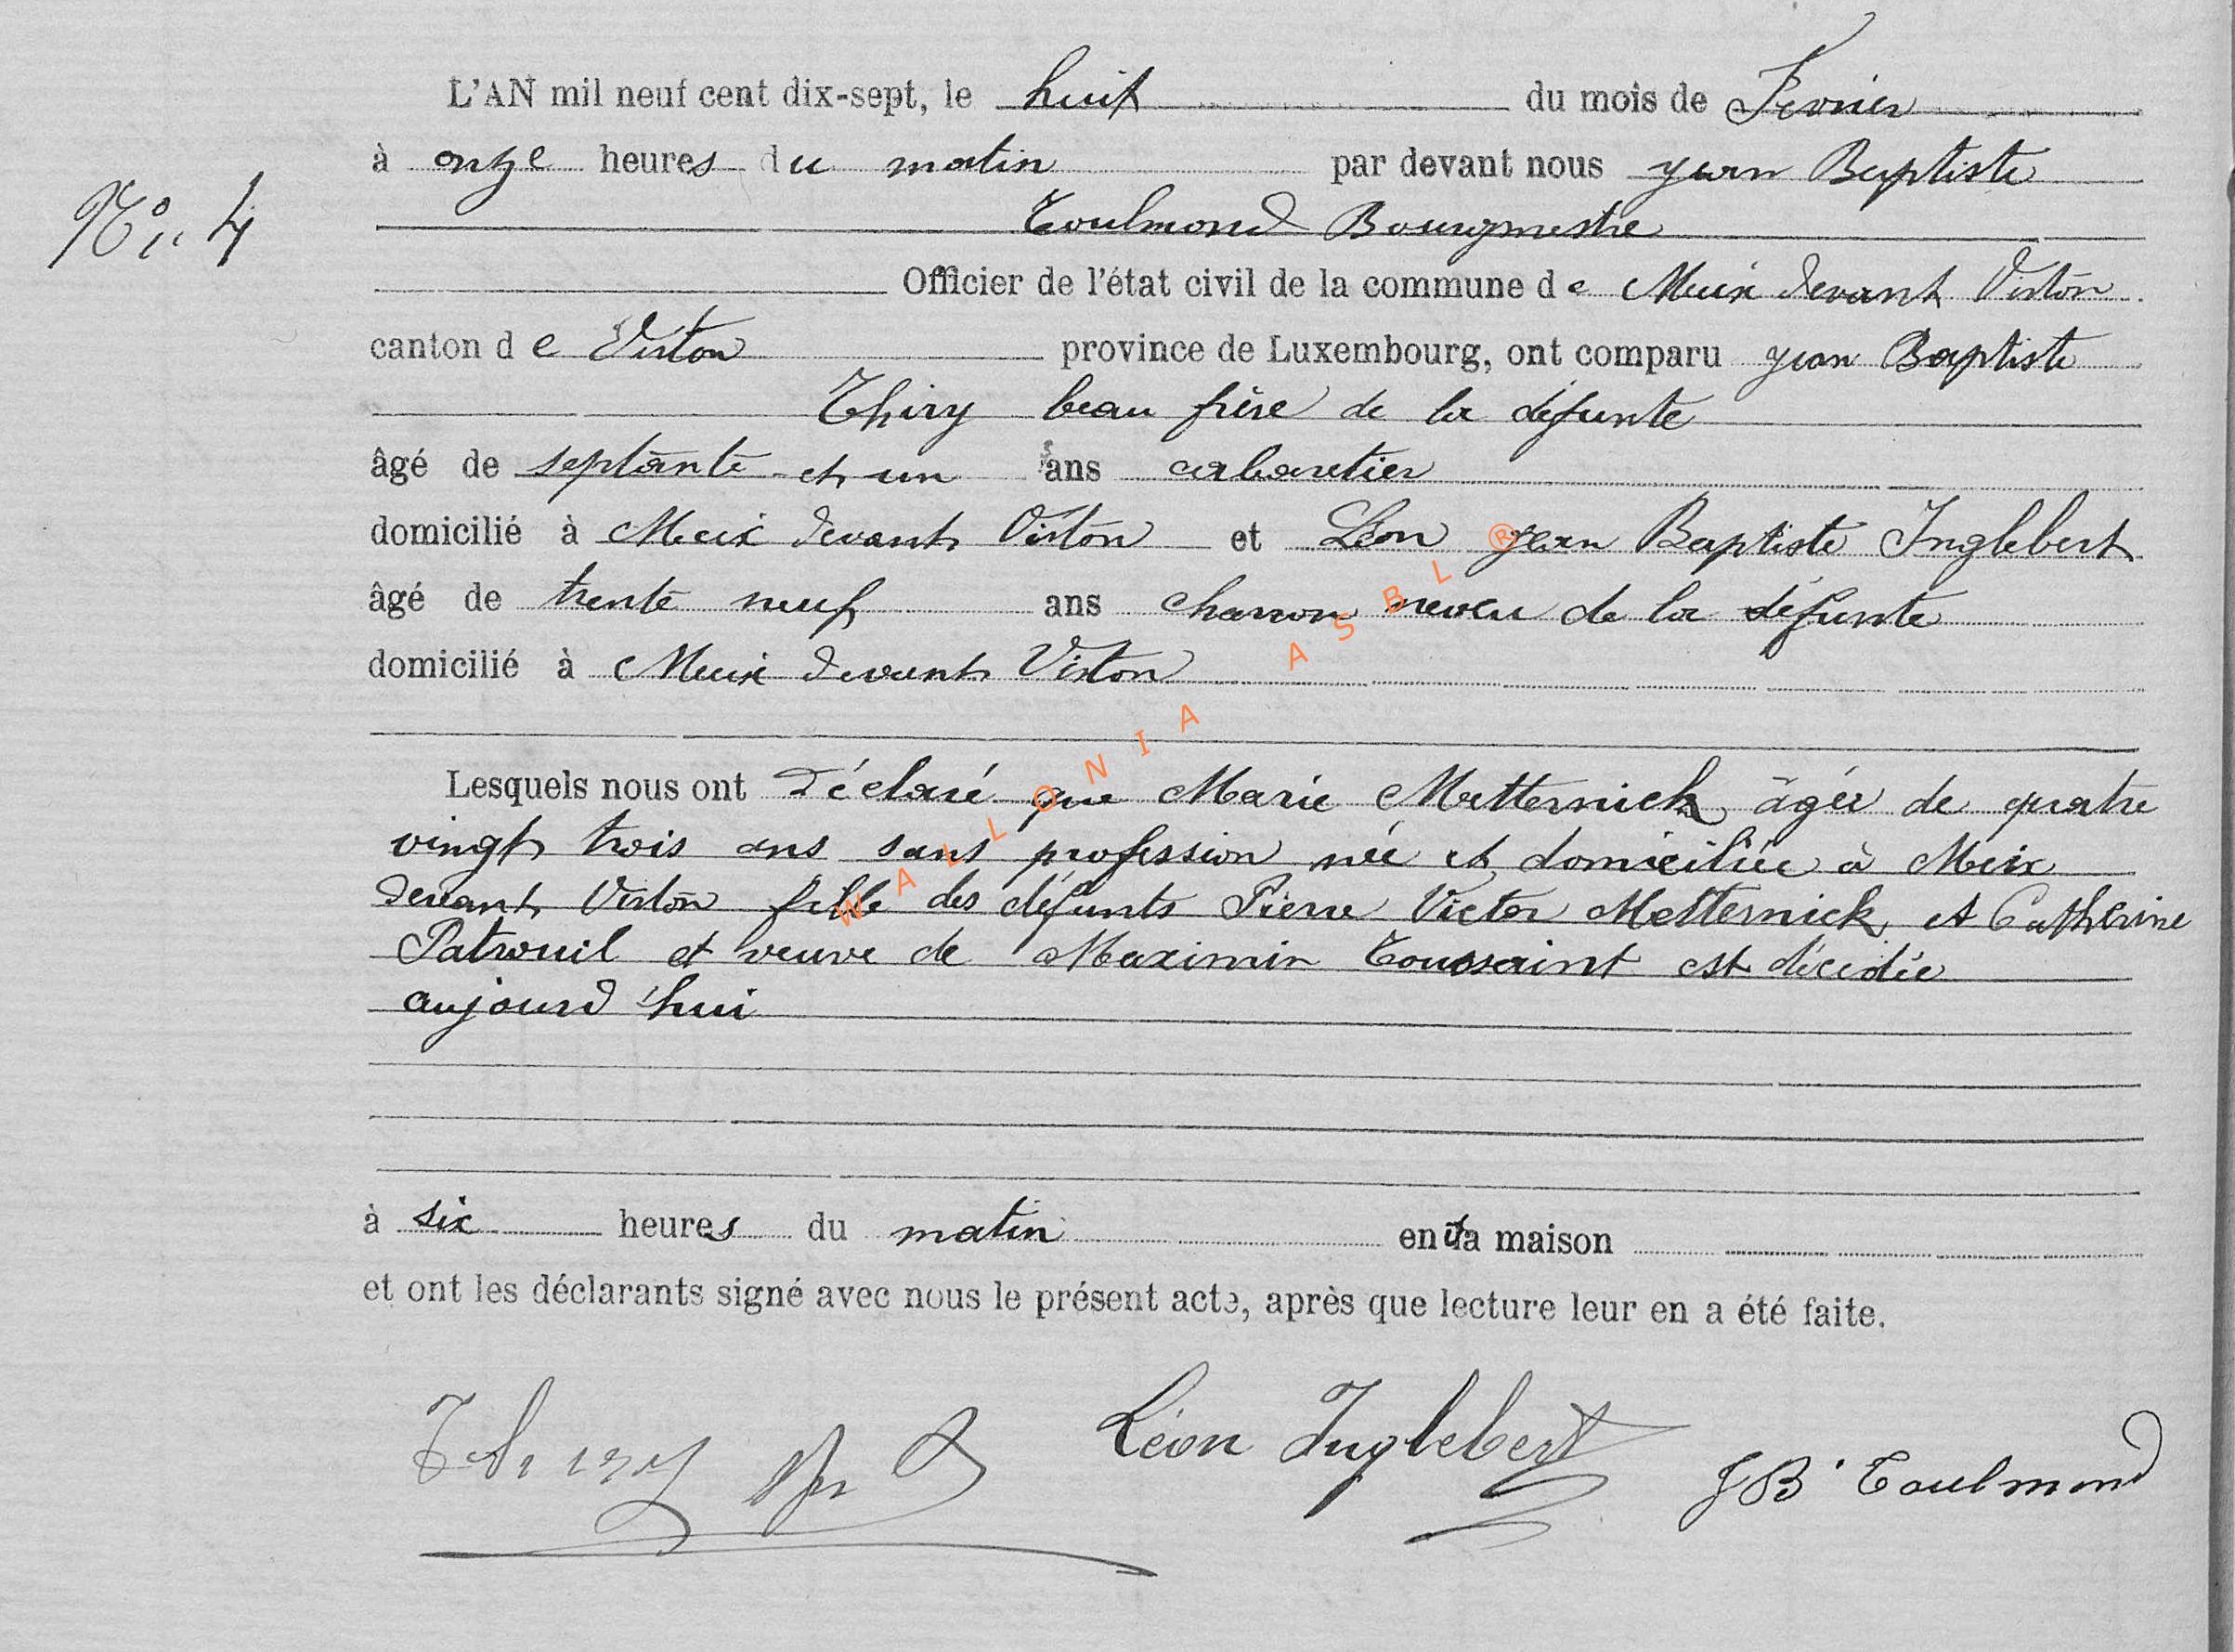 L'AN mil neuf cent dix-sept, le huit du mois de Fevrier
à onze heures du matin par devant nous Jean Baptiste
N° 4
Toulmond Bourgmestre
Officier de l'état civil de la commune de Meix devant Virton
canton de Virton province de Luxembourg, ont comparu Jean Baptiste
Thiry beau frère de la défunte
âgé de septante et un ans cabaretier
domicilié à Meix devant Virton et Léon Jean Baptiste Inglebert
âgé de trente neuf ans charron neveu de la défunte
domicilié à Meix devant Virton
Lesquels nous ont déclaré que Marie Metternick âgée de quatre
vingt trois ans sans profession née et domiciliée à Meix
devant Virton fille des défunts Pierre Victor Metternick et Catherine
Patrouil et veuve de Maximin Toussaint est décédée
aujourd'hui
à six heures du matin en sa maison
et ont les déclarants signé avec nous le présent acte, après que lecture leur en a été faite.
Thiry Léon Inglebert JB Toulmond
WALLONIA ASBL ®